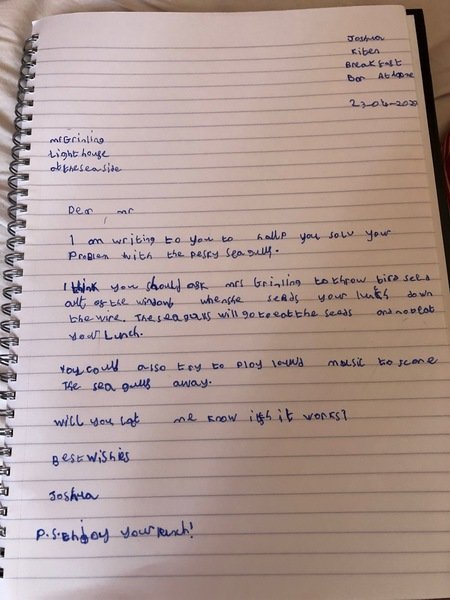 Joshua
Kiten
Breakfast
Bar At home
23-04-2020
mr Grinling
Light house
of the sea side
Der, mr
I am writing to you to hallp you solv your
Problem with the Pesky sea gulls.
I think you should ask mrs Grinling to throw bird seed
out of the window when she sends your lunch down
the wire. The sea gulls will go to eat the seeds and not eat
your Lunch.
You could also try to play loud music to scare
the sea gulls away.
will you let me know if it works?
Best wishies
Joshua
P.S. Enjoy your Lunch!